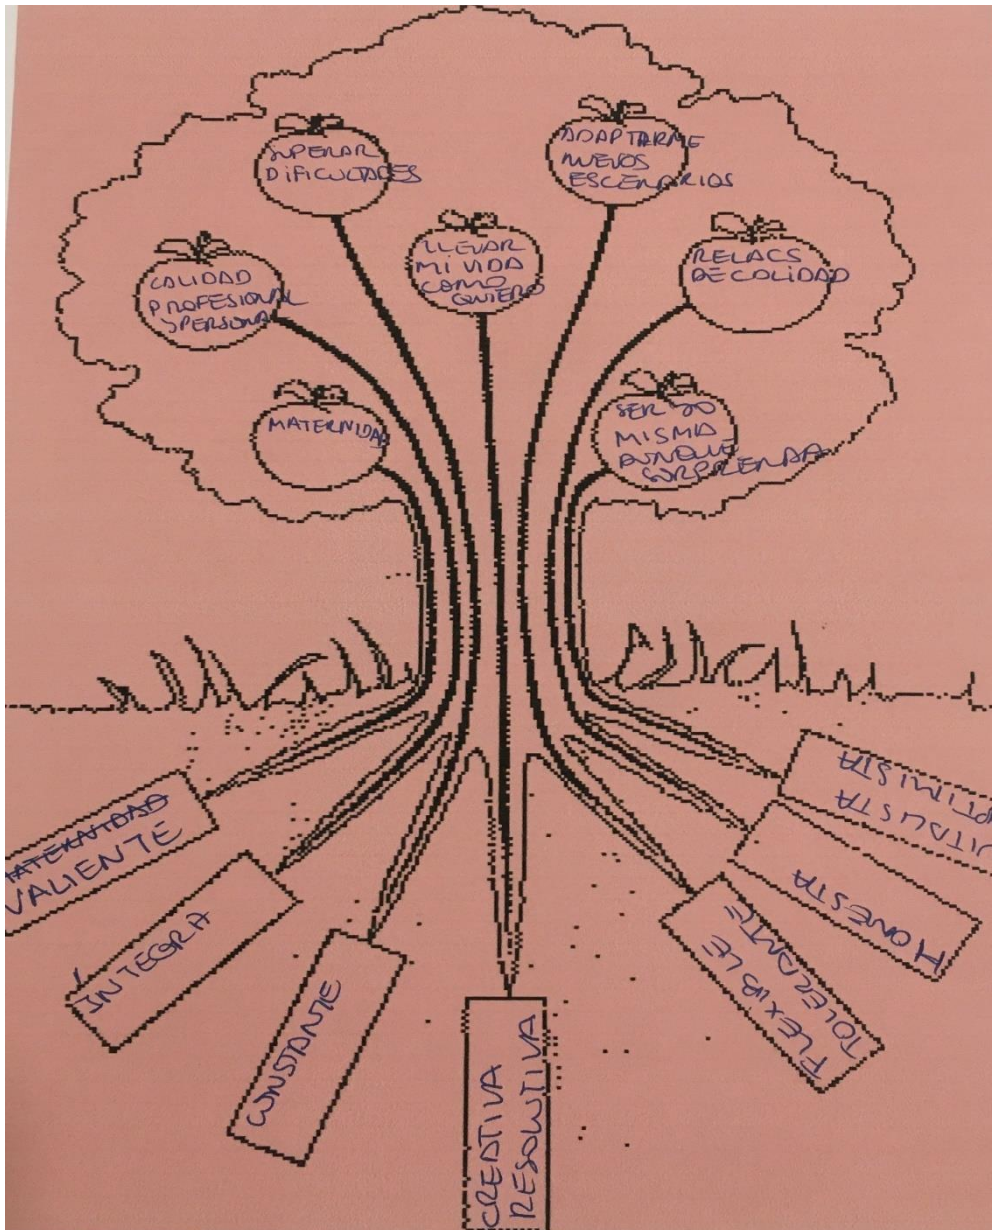 SUPERAR
DIFICULTADES
ADAPTARME
NUEVOS
ESCENARIOS
LLEVAR
MI VIDA
COMO
QUIERO
CALIDAD
PROFESIONAL
Y PERSONAL
RELACS
DE CALIDAD
MATERNIDAD
SER YO
MISMA
AUNQUE
SORPRENDA
MATERNIDAD
VALIENTE
INTEGRA
CONSTANTE
CREATIVA
RESOLUTIVA
FLEXIBLE
TOLERANTE
HONESTA
VITALISTA
OPTIMISTA